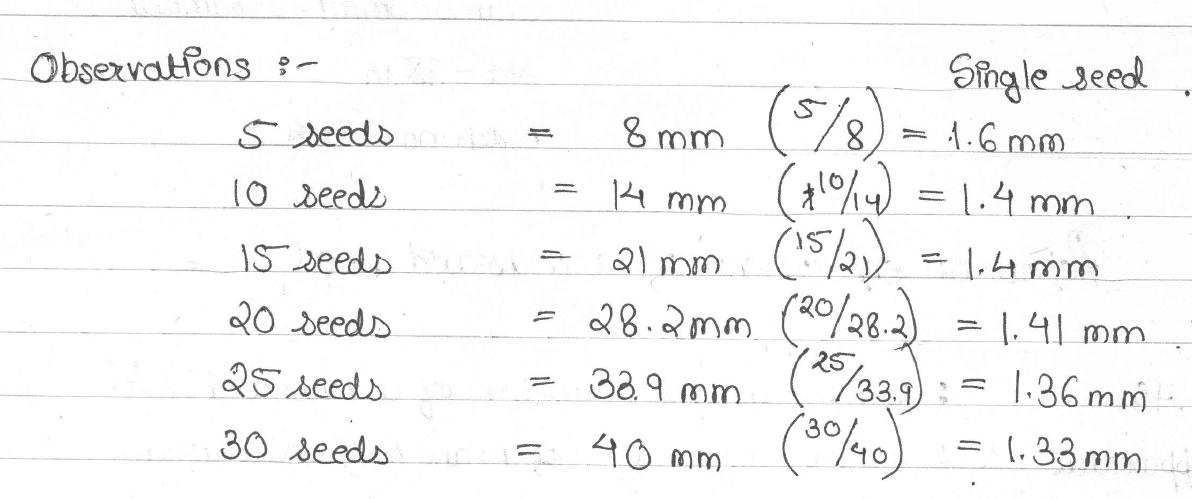 Observations :-
Single seed.
5 seeds = 8 mm (5/8) = 1.6 mm
10 seeds = 14 mm (10/14) = 1.4 mm.
15 seeds = 21 mm (15/21) = 1.4 mm
20 seeds = 28.2 mm (20/28.2) = 1.41 mm.
25 seeds = 33.9 mm (25/33.9) = 1.36 mm.
30 seeds = 40 mm (30/40) = 1.33 mm